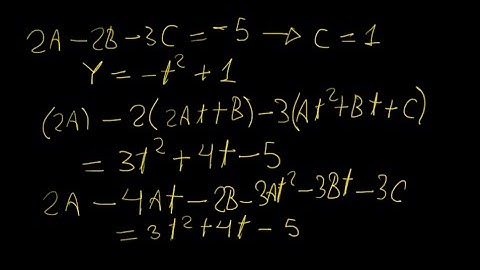 2A - 2B - 3C = -5 → C = 1
Y = -t² + 1
(2A) - 2(2At + B) - 3(At² + Bt + C)
= 3t² + 4t - 5
2A - 4At - 2B - 3At² - 3Bt - 3C
= 3t² + 4t - 5